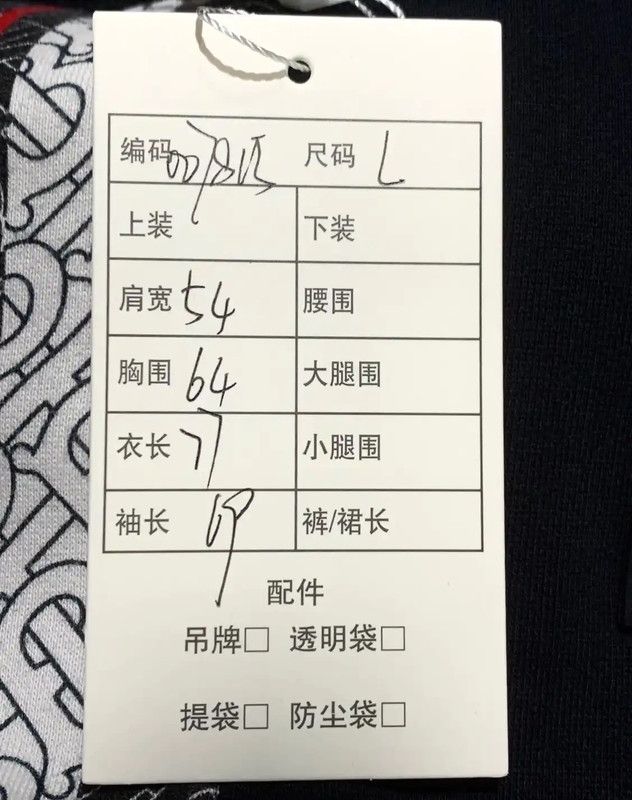 编码 尺码 L
上装 下装
肩宽 54 腰围
胸围 64 大腿围
衣长 77 小腿围
袖长 裤/裙长
配件
吊牌□ 透明袋□
提袋□ 防尘袋□